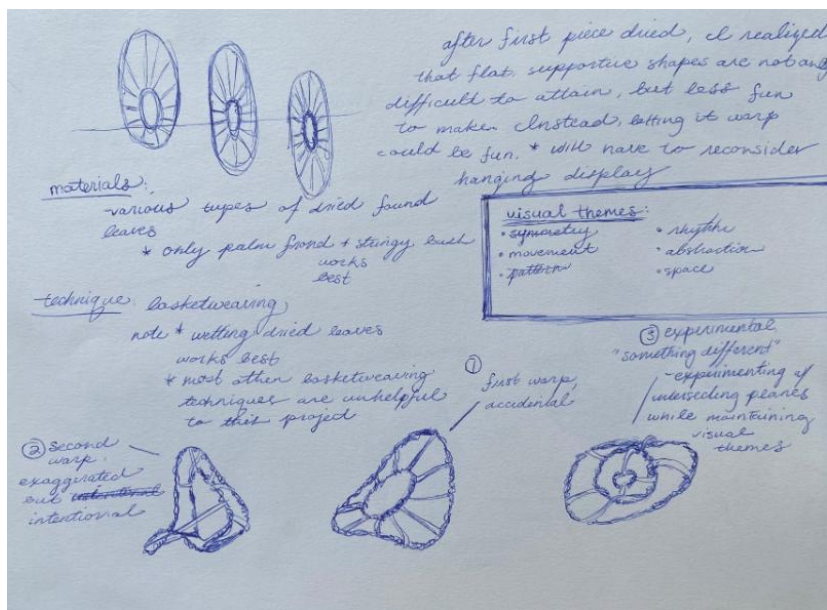 after first piece dried, I realized
that flat, supportive shapes are not only
difficult to attain, but less fun
to make. Instead, letting it warp
could be fun. * will have to reconsider
hanging display
materials:
- various types of dried found
leaves
* only palm frond + stringy bush
works
best
visual themes:
• symmetry
• movement
• pattern
• rhythm
• abstraction
• space
technique: basketweaving
note * wetting dried leaves
works best
* most other basketweaving
techniques are unhelpful
to this project
① first warp,
accidental
③ experimental
"something different"
- experimenting w/
intersecting planes
while maintaining
visual
themes
② second
warp.
exaggerated
but
intentional